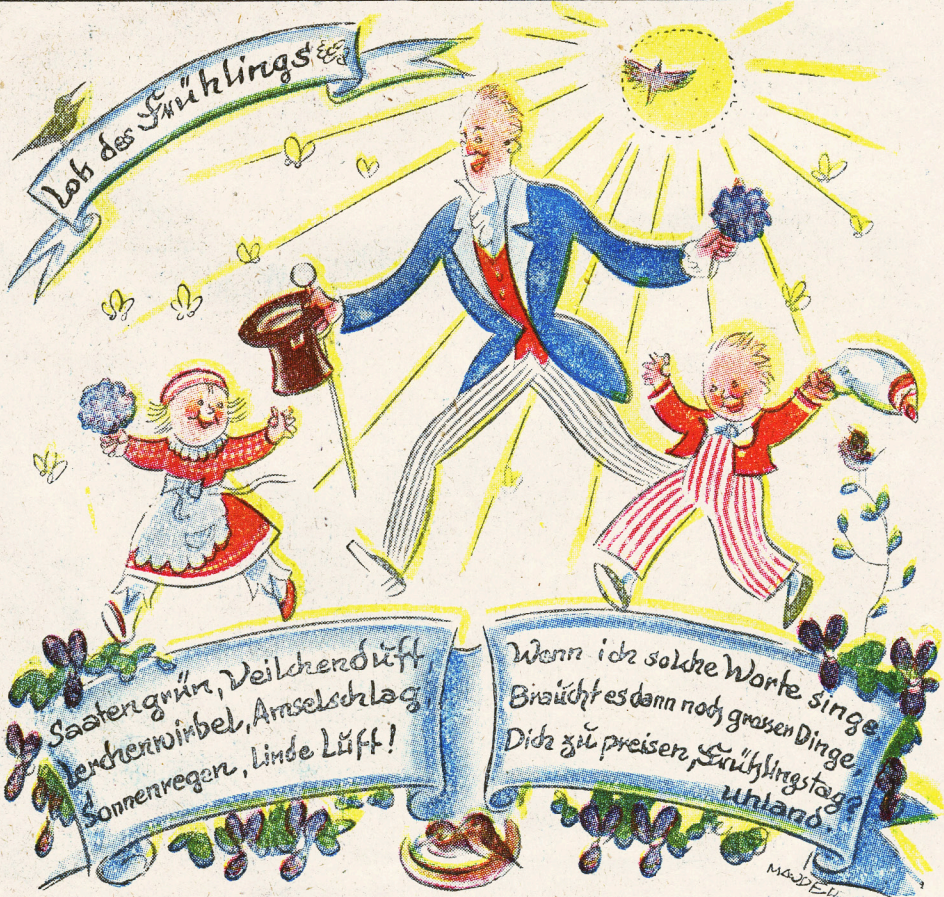 Lob des Frühlings
Saatengrün, Veilchenduft,
Lerchenwirbel, Amselschlag,
Sonnenregen, linde Luft!
Wenn ich solche Worte singe,
Braucht es dann noch grosser Dinge,
Dich zu preisen, Frühlingstag?
Uhland.